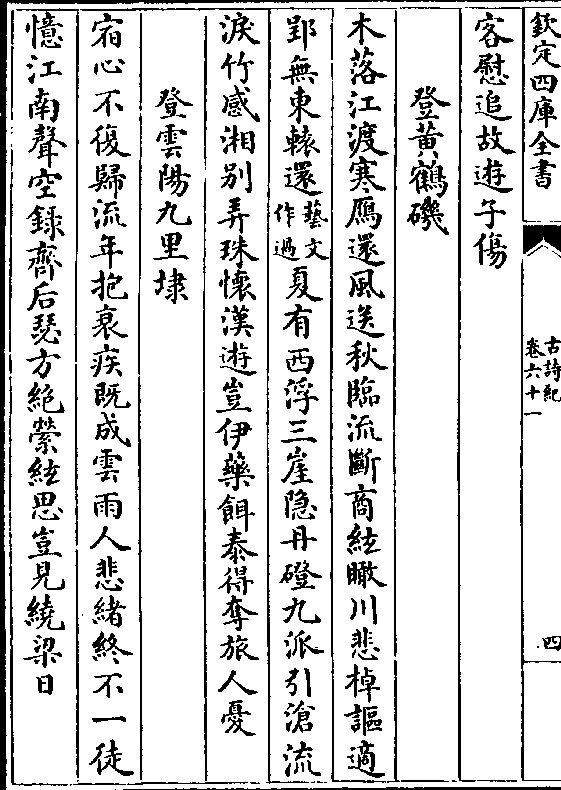 欽定四庫全書
古詩紀
卷六十一
四
客慰追故遊子傷
登黃鶴磯
木落江渡寒鴈還風送秋臨流斷商絃瞰川悲棹謳適
郢無東轅還藝文作過夏有西浮三崖隐丹磴九派引滄流
淚竹感湘别弄珠懷漢遊豈伊藥餌泰得奪旅人憂
登雲陽九里埭
宿心不復歸流年抱衰疾既成雲雨人悲緒終不一徒
憶江南聲空録齊后瑟方絶縈絃思豈見繞梁日